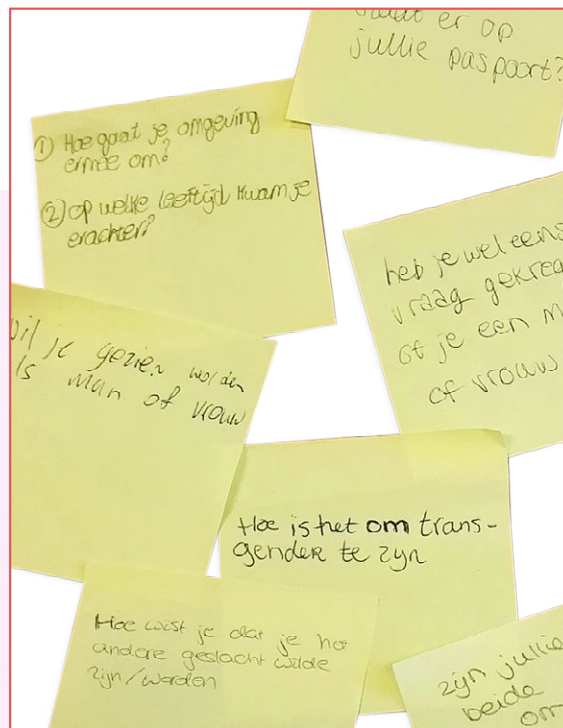 er op
jullie paspoort?
① Hoe gaat je omgeving
ermee om?
② op welke leeftijd kwam je
erachter?
heb je wel eens
vraag gekreg
of je een m
of vrouw
wil je gezien worden
als man of vrouw
Hoe is het om trans-
gender te zijn
Hoe wist je dat je het
andere geslacht wilde
zijn/worden
zijn jullie
beide
om